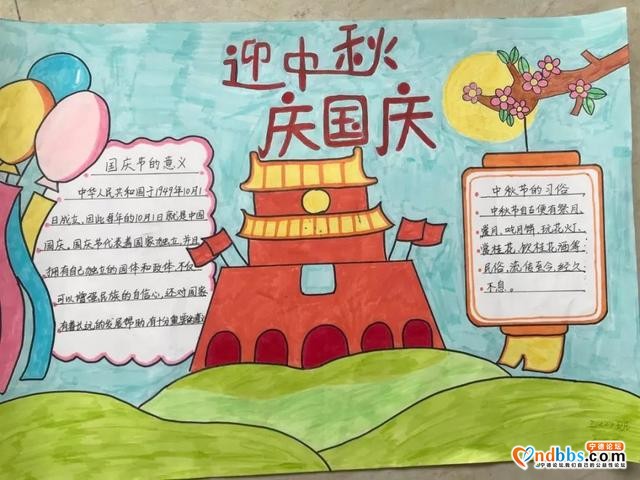 迎中秋
庆国庆
国庆节的意义
中华人民共和国于1949年10月1
日成立,因此每年的10月1日就是中国
国庆。国庆节代表着国家独立,并且
拥有自己独立的国体和政体,不仅
可以增强民族的自信心,还对国家
有着长远的发展帮助,有十分重要的意义
中秋节的习俗
中秋节自古便有祭月、
赏月、吃月饼、玩花灯、
赏桂花、饮桂花酒等
民俗,流传至今,经久
不息。
宁德论坛
ndbbs.com
宁德论坛,我们自己的公益性论坛